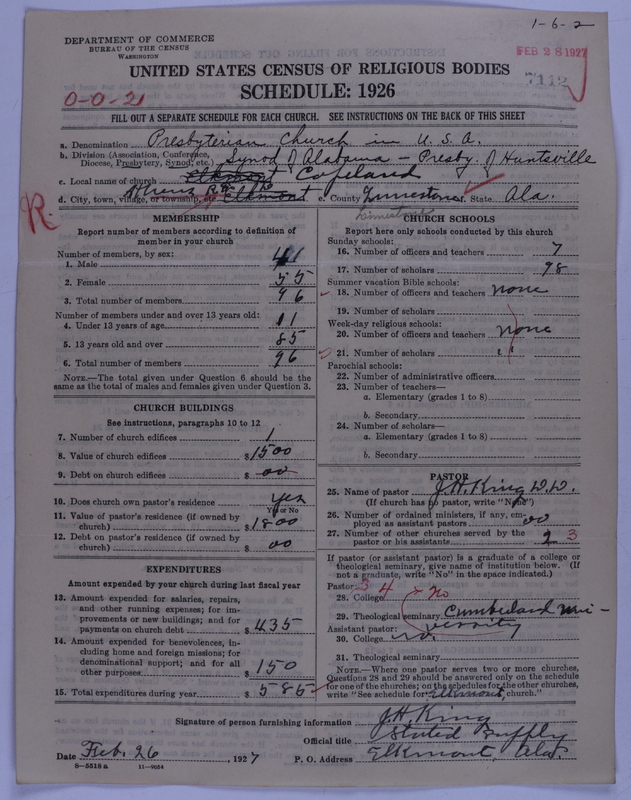 1-6-2
DEPARTMENT OF COMMERCE
BUREAU OF THE CENSUS
WASHINGTON
FEB 28 1927
7112
UNITED STATES CENSUS OF RELIGIOUS BODIES
SCHEDULE: 1926
0-0-21
FILL OUT A SEPARATE SCHEDULE FOR EACH CHURCH. SEE INSTRUCTIONS ON THE BACK OF THIS SHEET
a. Denomination Presbyterian Church in U. S. A.
b. Division (Association, Conference, Diocese, Presbytery, Synod, etc.) Synod of Alabama - Presby. of Huntsville
c. Local name of church Elkmont Copeland
d. City, town, village, or township, Athens Elkmont e. County Limestone State Ala.
Limestone
R.
MEMBERSHIP
Report number of members according to definition of
member in your church
Number of members, by sex:
1. Male 41
2. Female 55
3. Total number of members 96
Number of members under and over 13 years old:
4. Under 13 years of age 11
5. 13 years old and over 85
6. Total number of members 96
NOTE.—The total given under Question 6 should be
the same as the total of males and females given under Question 3.
CHURCH BUILDINGS
See instructions, paragraphs 10 to 12
7. Number of church edifices 1
8. Value of church edifices $1500
9. Debt on church edifices $ 00
10. Does church own pastor's residence yes
Yes or No
11. Value of pastor's residence (if owned by
church) $1800
12. Debt on pastor's residence (if owned by
church) $ 00
EXPENDITURES
Amount expended by your church during last fiscal year
13. Amount expended for salaries, repairs,
and other running expenses; for im-
provements or new buildings; and for
payments on church debt $435
14. Amount expended for benevolences, in-
cluding home and foreign missions; for
denominational support; and for all
other purposes $150
15. Total expenditures during year $585
CHURCH SCHOOLS
Report here only schools conducted by this church
Sunday schools:
16. Number of officers and teachers 7
17. Number of scholars 98
Summer vacation Bible schools:
18. Number of officers and teachers none
19. Number of scholars
Week-day religious schools:
20. Number of officers and teachers none
21. Number of scholars "
Parochial schools:
22. Number of administrative officers
23. Number of teachers—
a. Elementary (grades 1 to 8)
b. Secondary
24. Number of scholars—
a. Elementary (grades 1 to 8)
b. Secondary
PASTOR
25. Name of pastor J. H. King D. D.
(If church has no pastor, write "None")
26. Number of ordained ministers, if any, em-
ployed as assistant pastors 00
27. Number of other churches served by the
pastor or his assistants 2 3
If pastor (or assistant pastor) is a graduate of a college or
theological seminary, give name of institution below. (If
not a graduate, write "No" in the space indicated.)
Pastor: 3 4
28. College no
29. Theological seminary Cumberland Uni-
versity
Assistant pastor:
30. College
31. Theological seminary
NOTE.—Where one pastor serves two or more churches,
Questions 28 and 29 should be answered only on the schedule
for one of the churches; on the schedules for the other churches,
write "See schedule for Elkmont church."
Signature of person furnishing information J. H. King
Official title Stated Supply
Date Feb. 26, 1927 P. O. Address Elkmont, Ala.
8—5518 a 11—9054